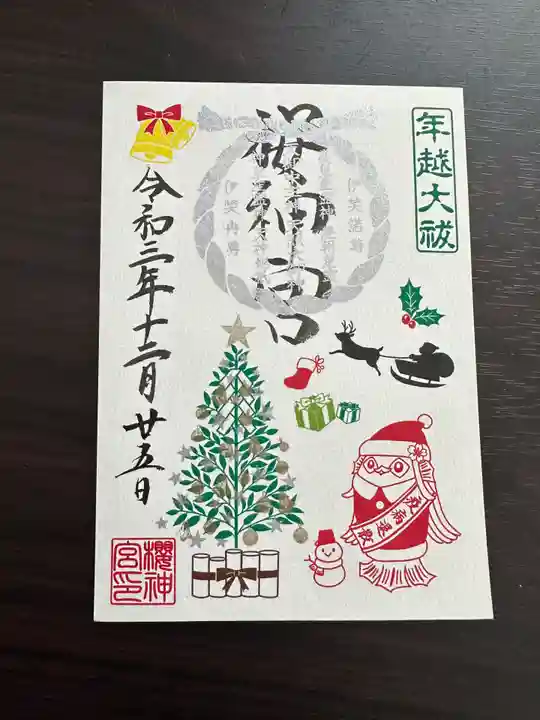 年越大祓
櫻神宮
伊笑諾尊
伊笑冉尊
令和三年十二月廿五日
疫病退散
櫻神
宮印